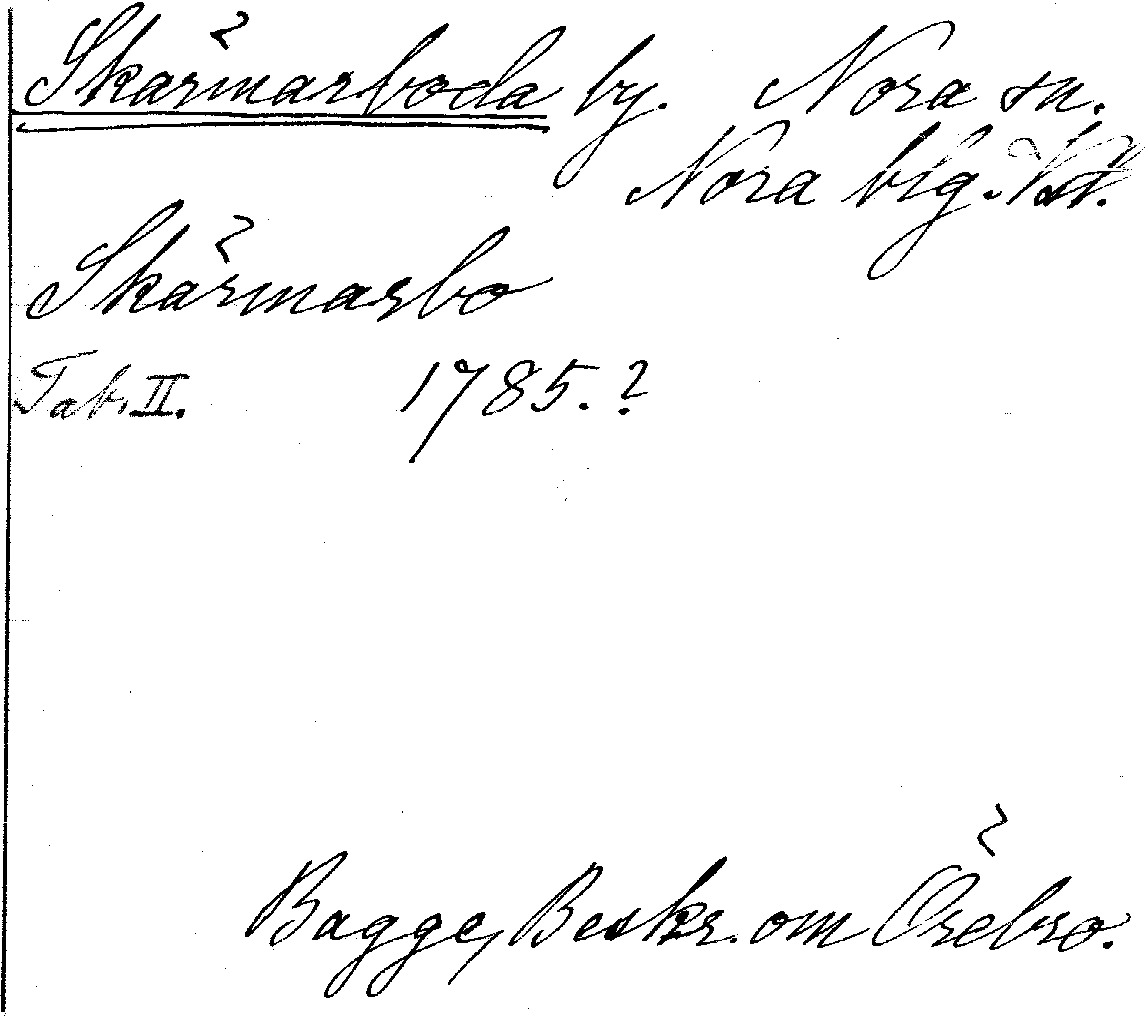 Skärmarboda by. Nora sn.
Nora blg.
Skärmarbo
Tab. II. 1785.?
Bagge, Beskr. om Örebro.